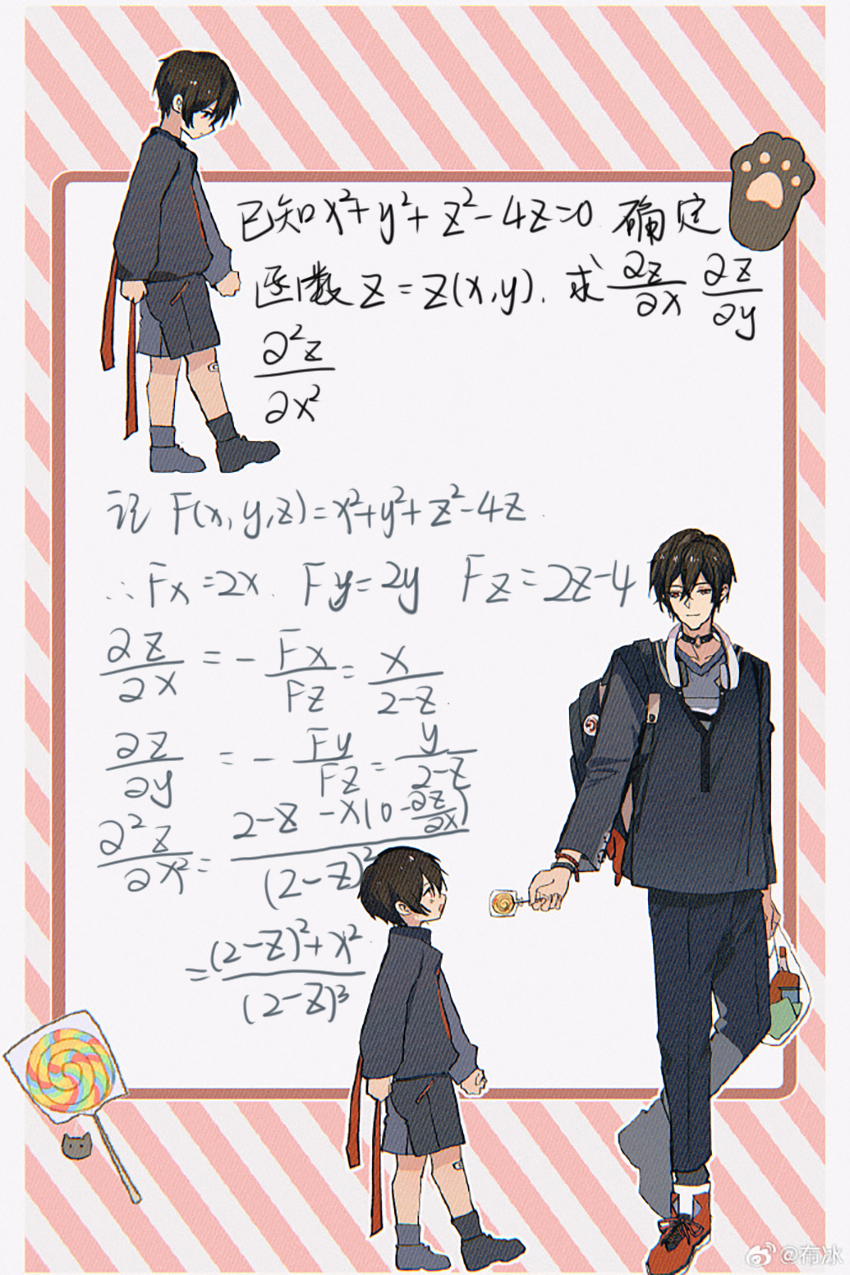 已知x²+y²+z²-4z=0 确定
函数 z=z(x,y). 求 ∂z/∂x ∂z/∂y
∂²z/∂x²
记 F(x,y,z)=x²+y²+z²-4z.
∴Fx=2x. Fy=2y Fz=2z-4
∂z/∂x = -Fx/Fz = x/2-z
∂z/∂y = -Fy/Fz = y/2-z
∂²z/∂x² = 2-z -x(0-∂z/∂x)/(2-z)²
=(2-z)²+x²/(2-z)³
@布冰